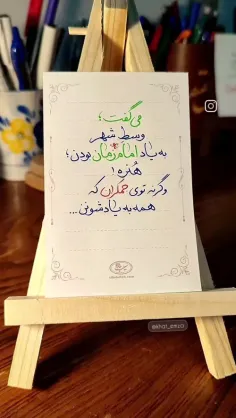 می‌گفت؛
وسط شهر
به یاد امام زمان بودن؛
هنره!
وگرنه توی جمکران که
همه به یادشونن...